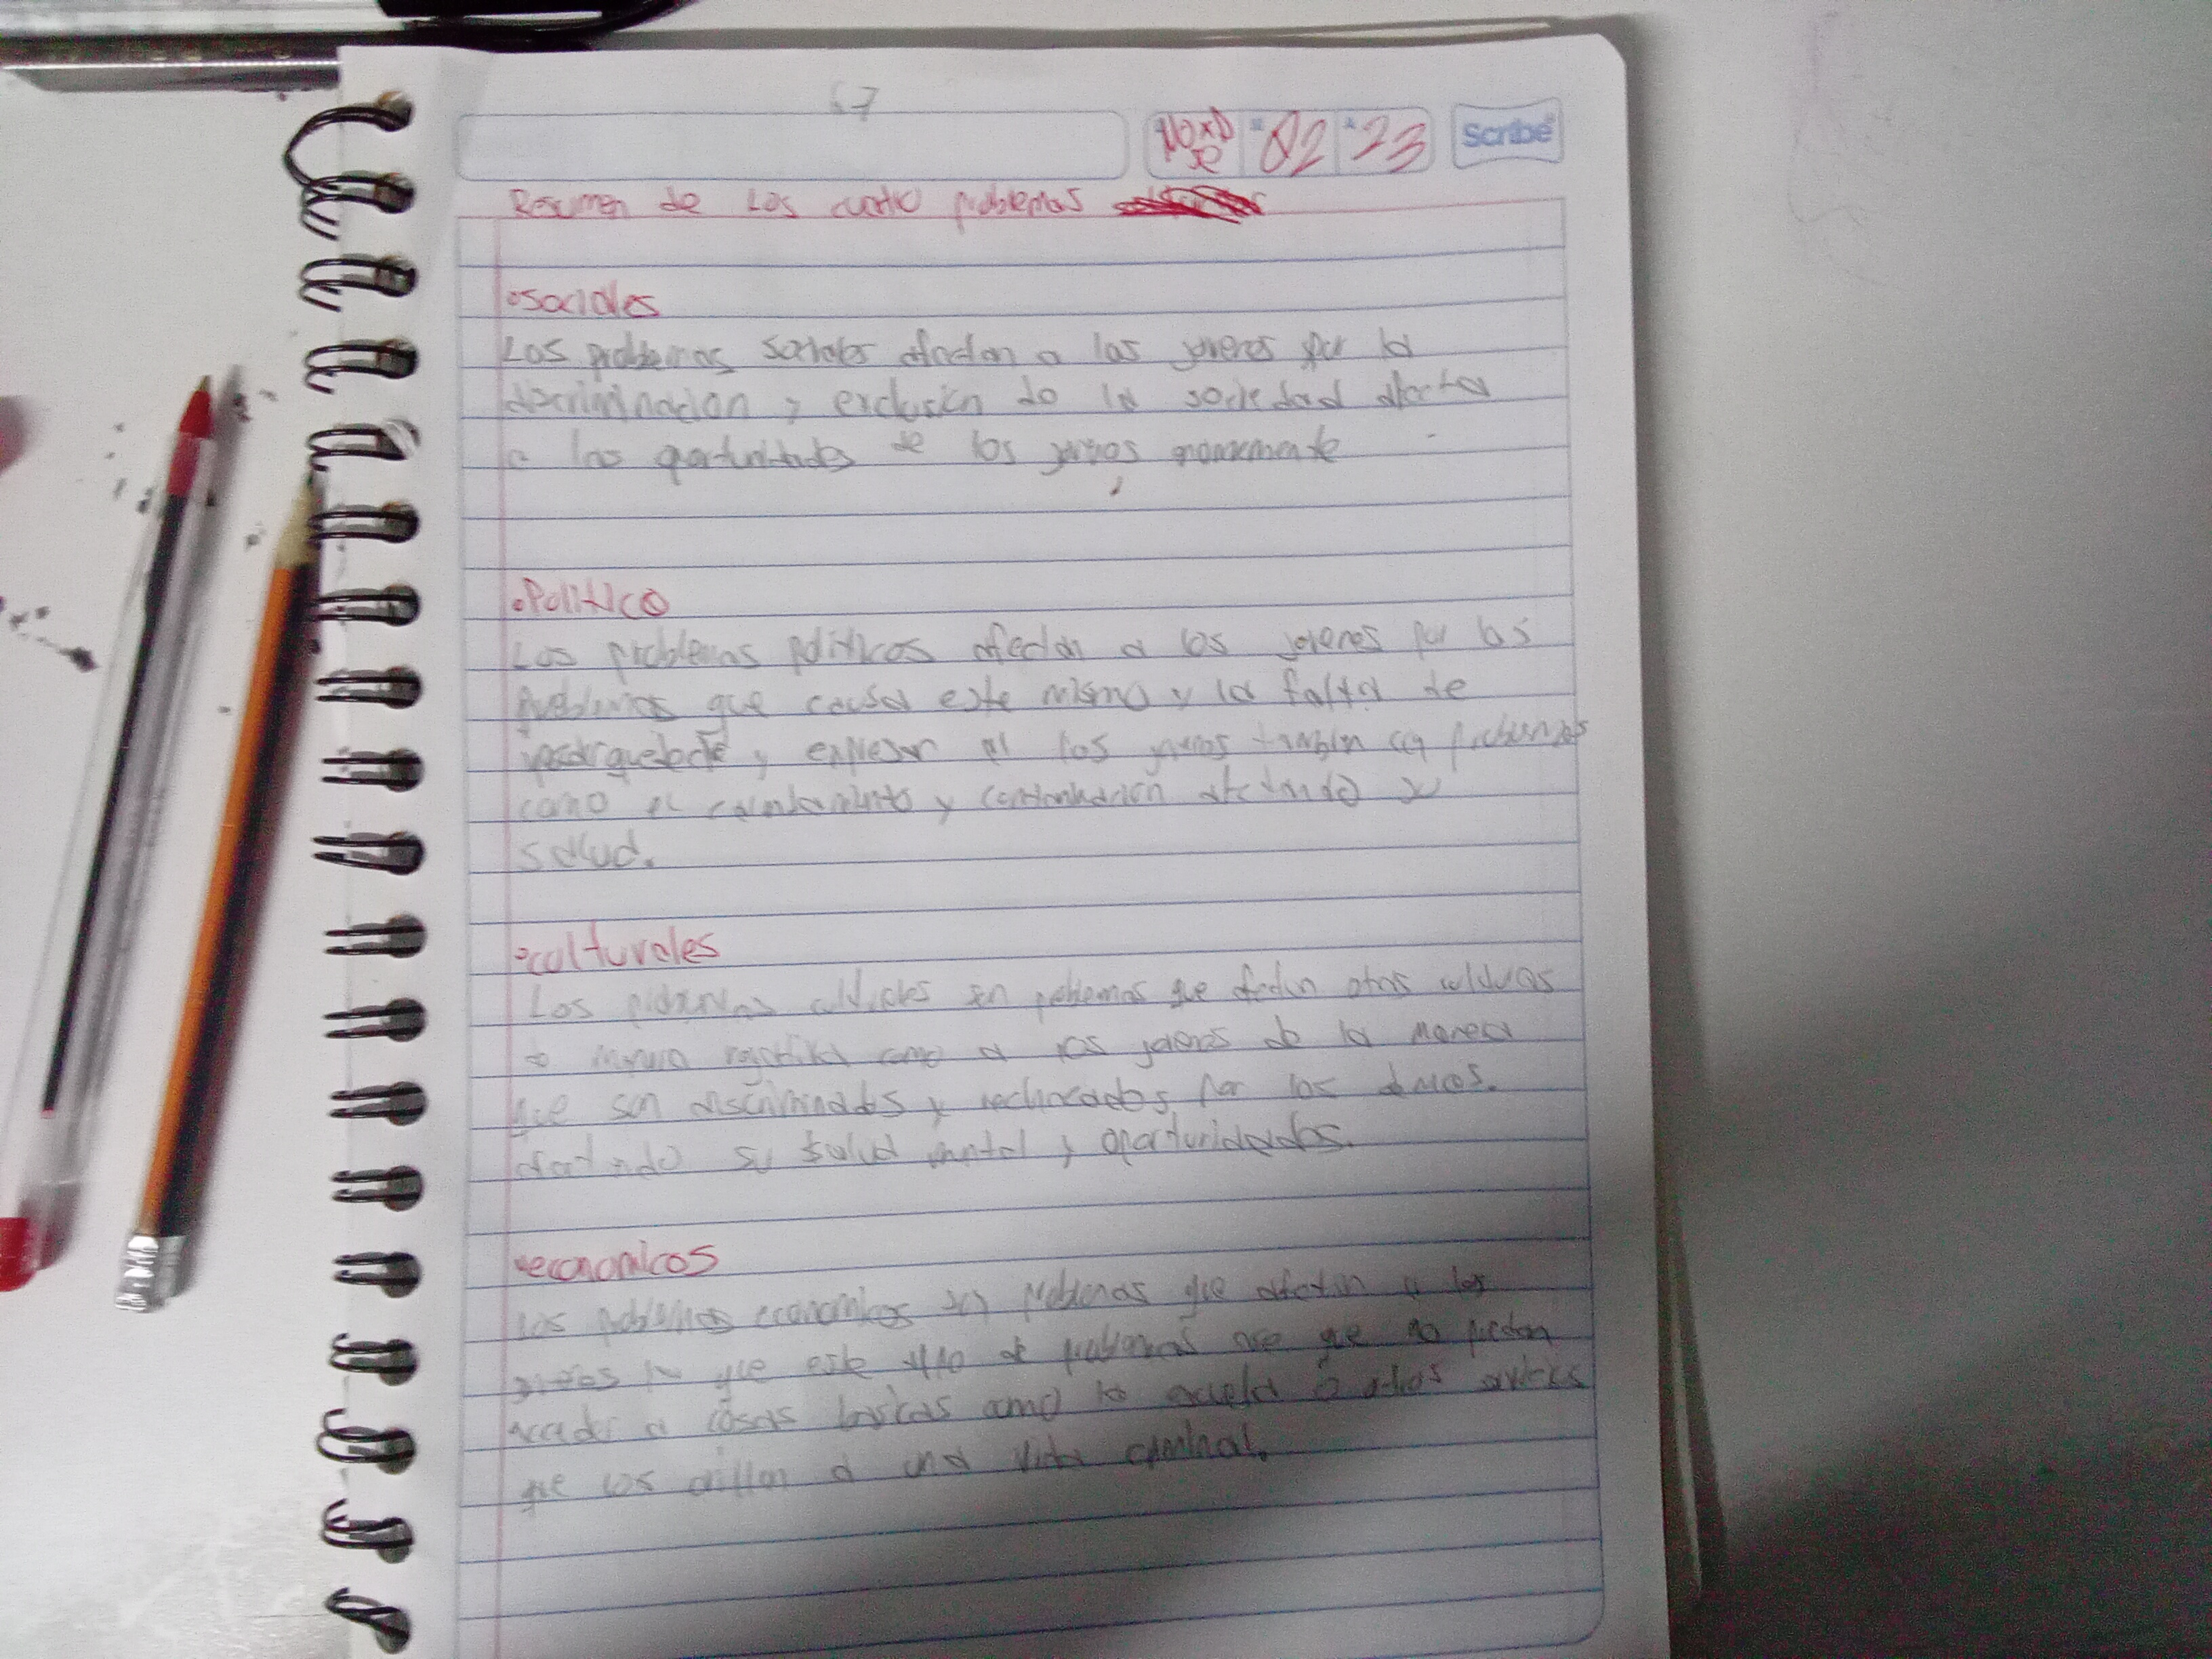 67
02 23
Scribe
Resumen de Los cuatro problemas
•sociales
Los problemas sociales afectan a los jovenes por la
discriminacion y exclusión de la sociedad afecta
a las oportunidades de los jovenes
•Politico
Los problemas politicos afectan a los jovenes por los
problemas que causa este mismo y la falta de
y expresar a los jovenes tambien con problemas
como el y contaminación afectando su
salud.
•culturales
Los problemas culturales son problemas que afectan otras culturas
de manera como a los jovenes de la manera
que son discriminados y rechazados por los demas.
afectando su salud mental y oportunidades.
•economicos
Los problemas economicos son problemas que afectan a los
que este tipo de problemas que no puedan
acceder a cosas basicas como la escuela o otros
que los orillan a una vida criminal.